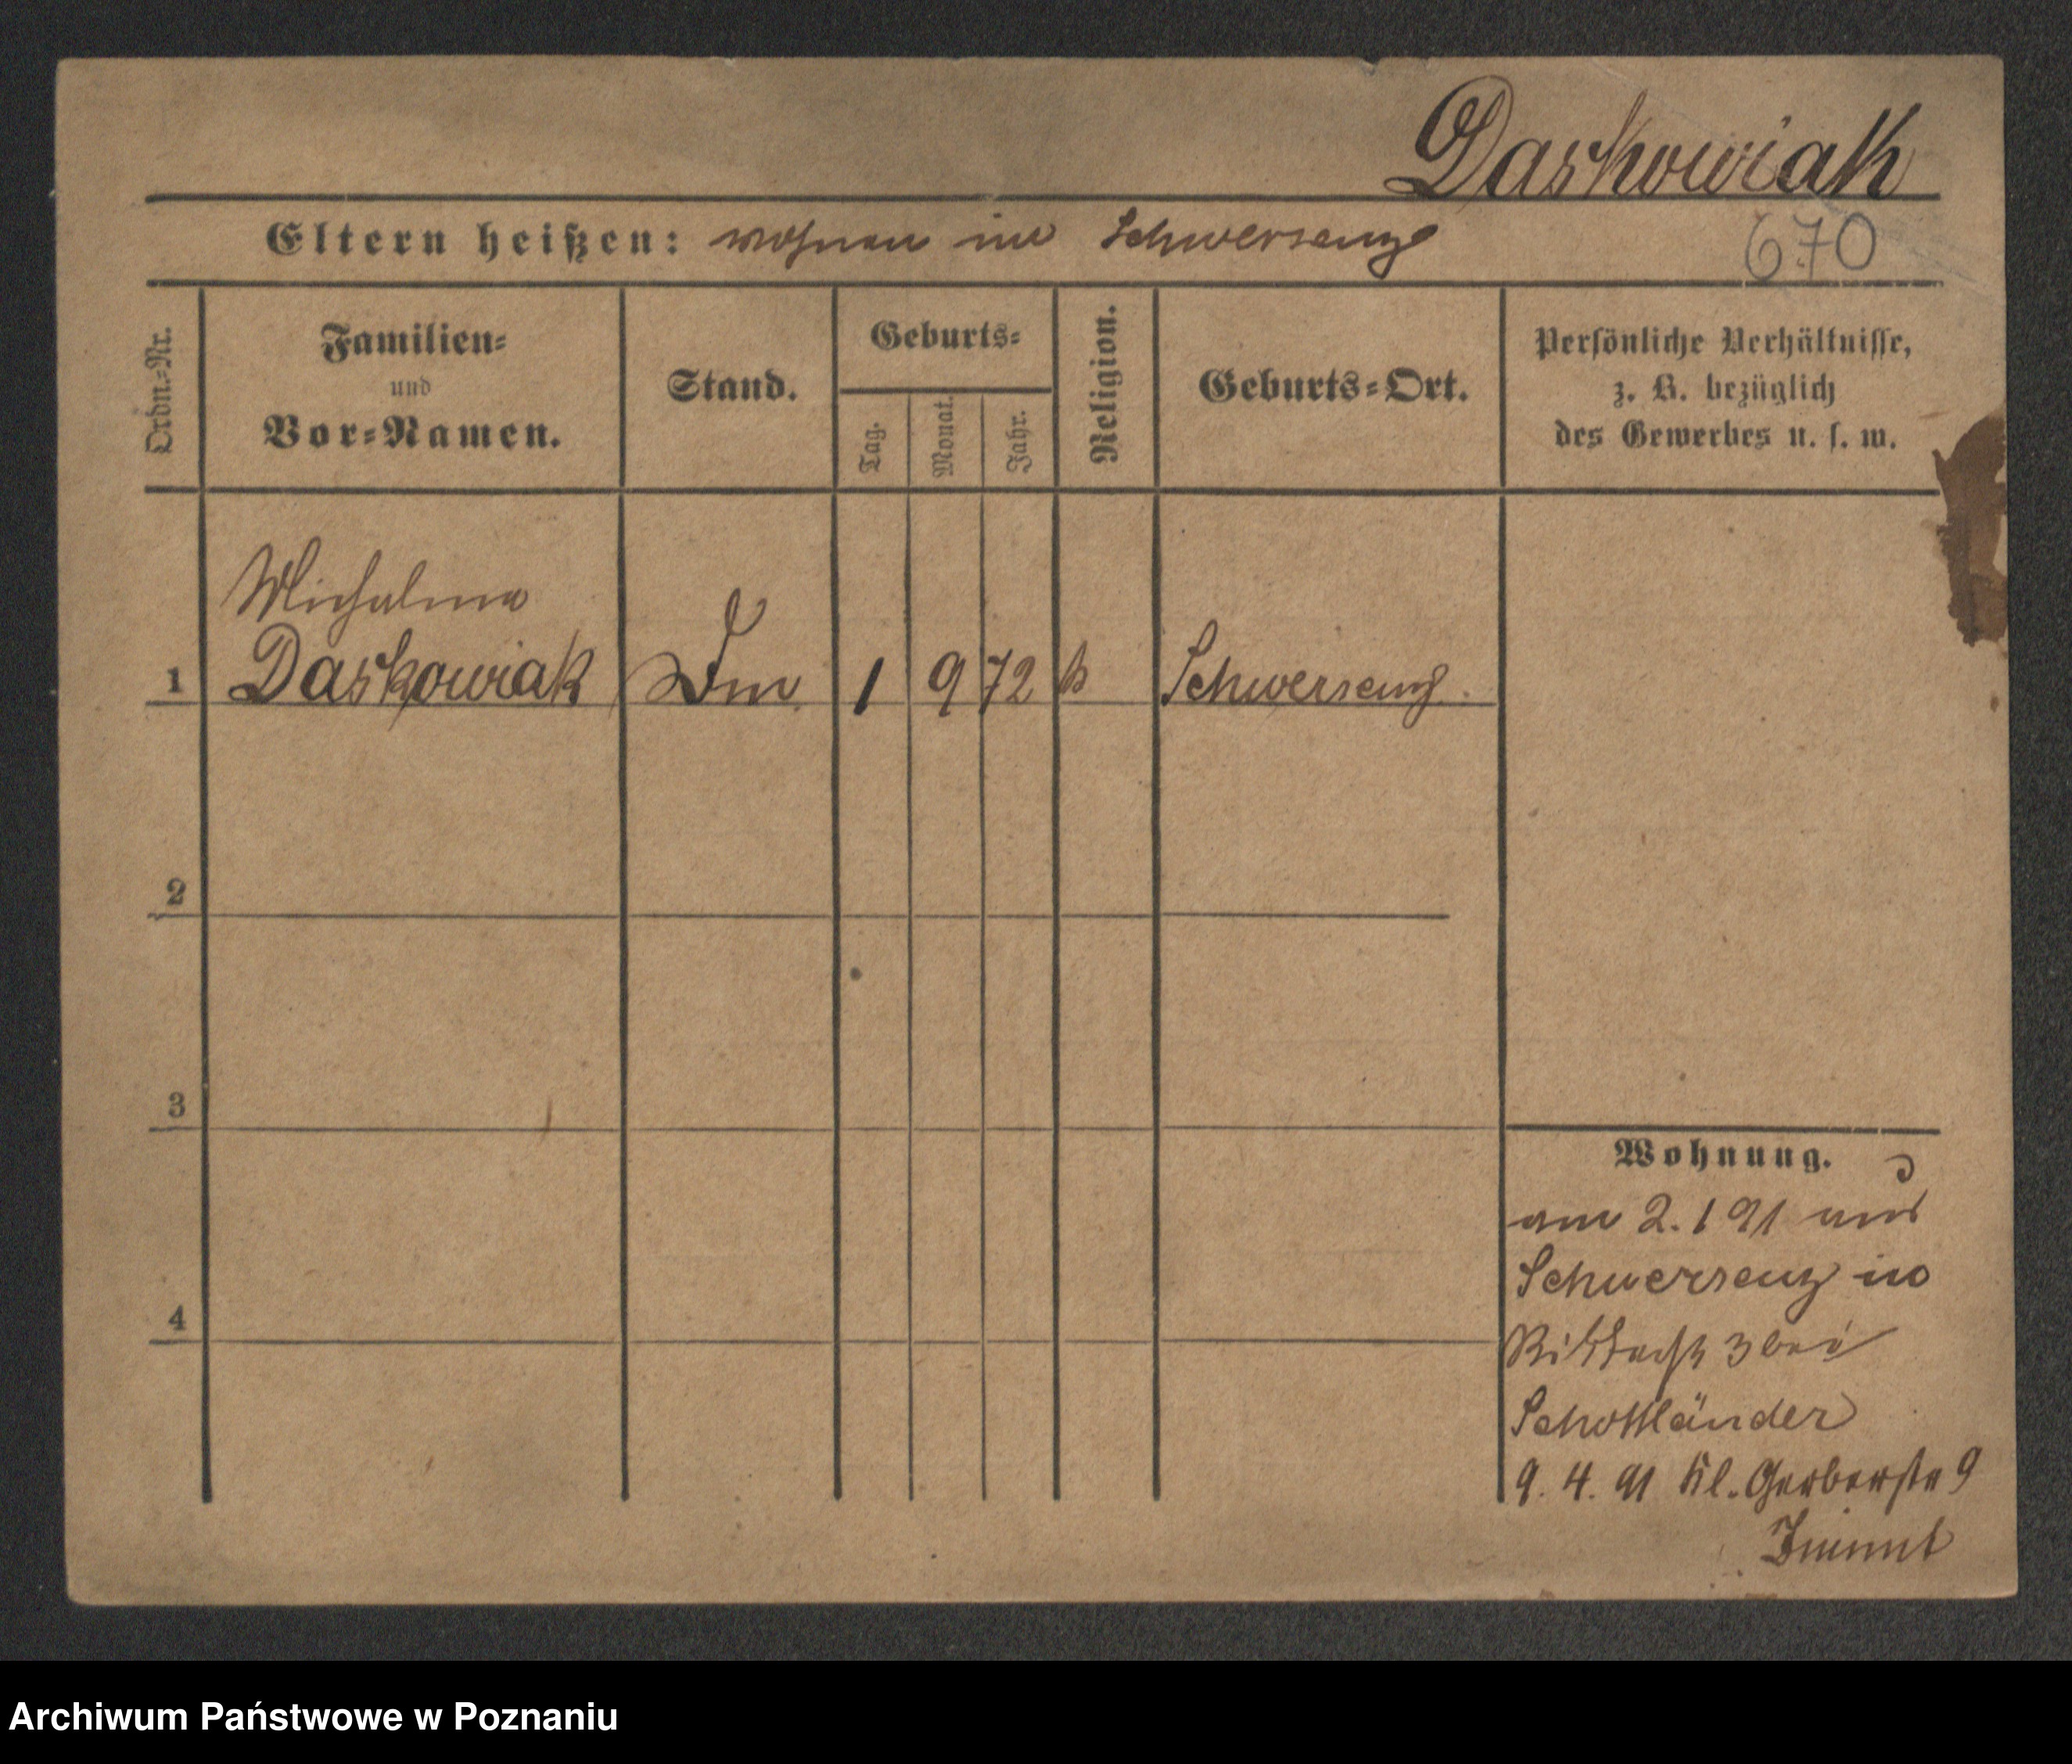 Daskowiak
Eltern heißen: wohnen in Schwersenz
670
Ordn.-Nr.
Familien-
und
Vor-Namen.
Stand.
Geburts-
Tag.
Monat.
Jahr.
Religion.
Geburts-Ort.
Persönliche Verhältnisse,
z. B. bezüglich
des Gewerbes u. s. w.
Michalina
1 Daskowiak 1 9 72 k Schwersenz.
2
3
4
Wohnung.
am 2. 1 91 aus
Schwersenz in
3 bei
Schottländer
9. 4. 91 Kl. Gerberstr 9
Archiwum Państwowe w Poznaniu